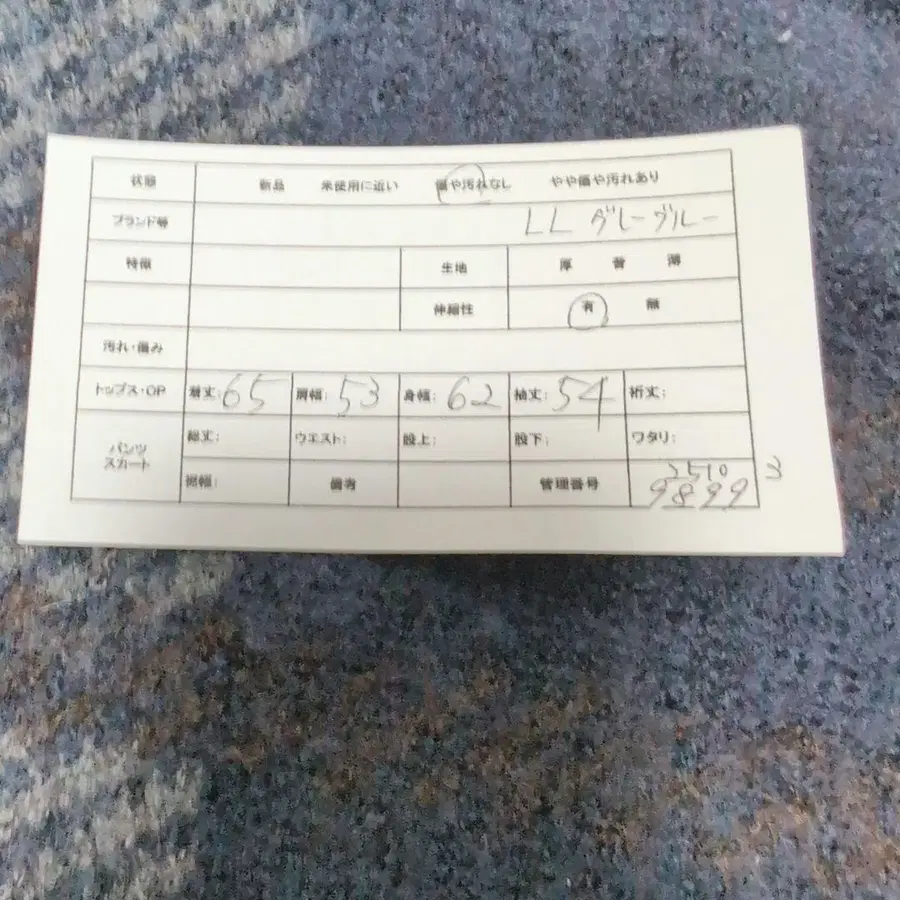 状態 新品 未使用に近い 傷や汚れなし やや傷や汚れあり
ブランド等 LL グレーブルー
特徴 生地 厚 普 薄
伸縮性 有 無
汚れ・傷み
トップス・OP 着丈:65 肩幅:53 身幅:62 袖丈:54 裄丈:
パンツ スカート 総丈: ウエスト: 股上: 股下: ワタリ:
裾幅: 備考 管理番号 2510 3
9899